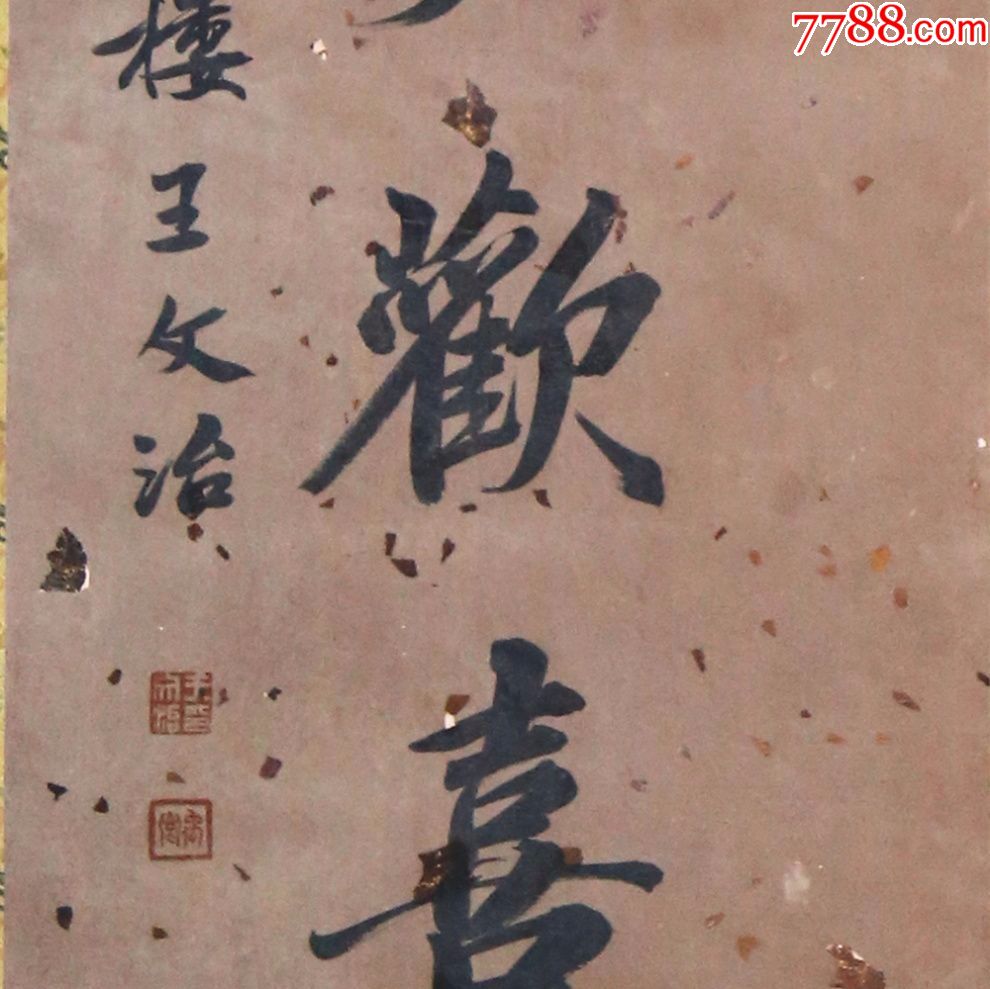 7788.com
歡喜
樓王文治